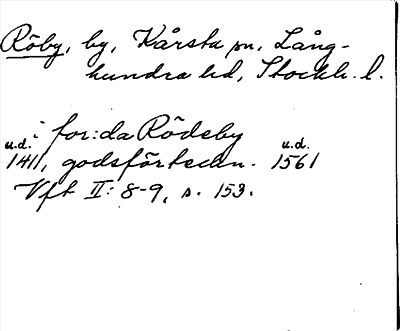 Röby, by, Kårsta sn, Lång-
hundra hd, Stockh. l.
i for:da Rödeby
u.d. 1411, godsförteckn. u.d. 1561
Vft II: 8-9, s. 153.